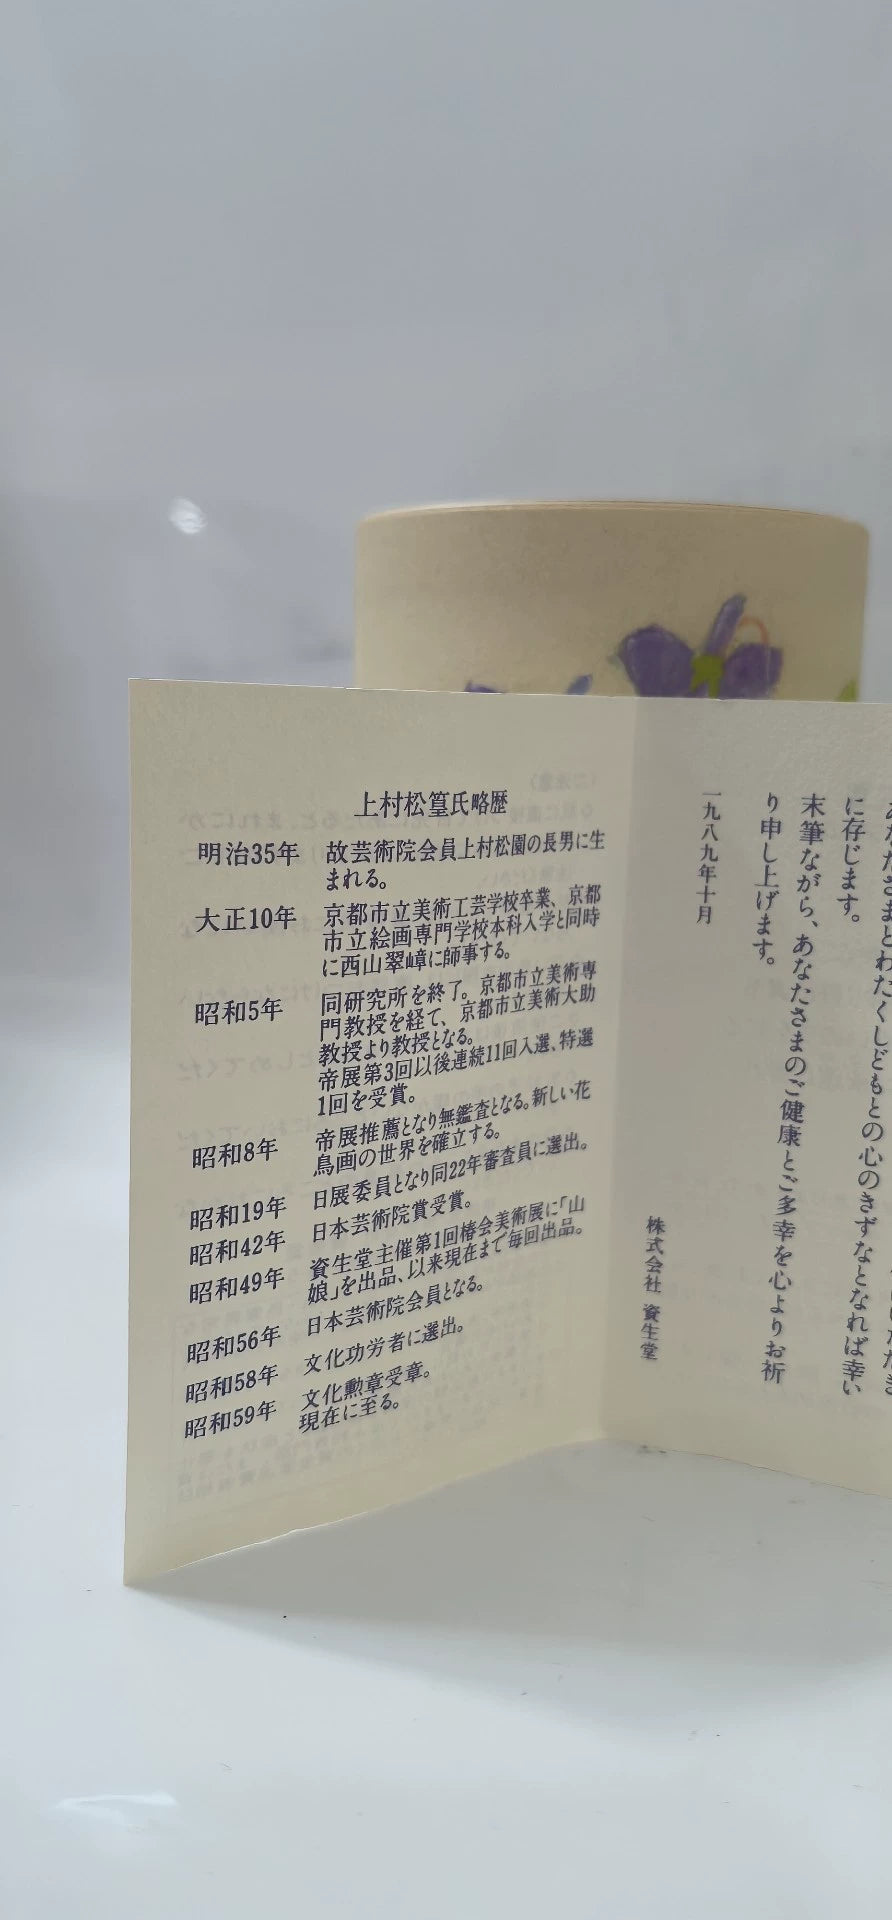 上村松篁氏略歴
明治35年 故芸術院会員上村松園の長男に生
まれる。
大正10年 京都市立美術工芸学校卒業、京都
市立絵画専門学校本科入学と同時
に西山翠嶂に師事する。
昭和5年 同研究所を終了。京都市立美術専
門教授を経て、京都市立美術大助
教授より教授となる。
帝展第3回以後連続11回入選、特選
1回を受賞。
昭和8年 帝展推薦となり無鑑査となる。新しい花
鳥画の世界を確立する。
昭和19年 日展委員となり同22年審査員に選出。
昭和42年 日本芸術院賞受賞。
昭和49年 資生堂主催第1回椿会美術展に「山
娘」を出品、以来現在まで毎回出品。
昭和56年 日本芸術院会員となる。
昭和58年 文化功労者に選出。
昭和59年 文化勲章受章。
現在に至る。
あなたさまとわたくしどもとの心のきずなとなれば幸い
に存じます。
末筆ながら、あなたさまのご健康とご多幸を心よりお祈
り申し上げます。
一九八九年十月
株式会社 資生堂